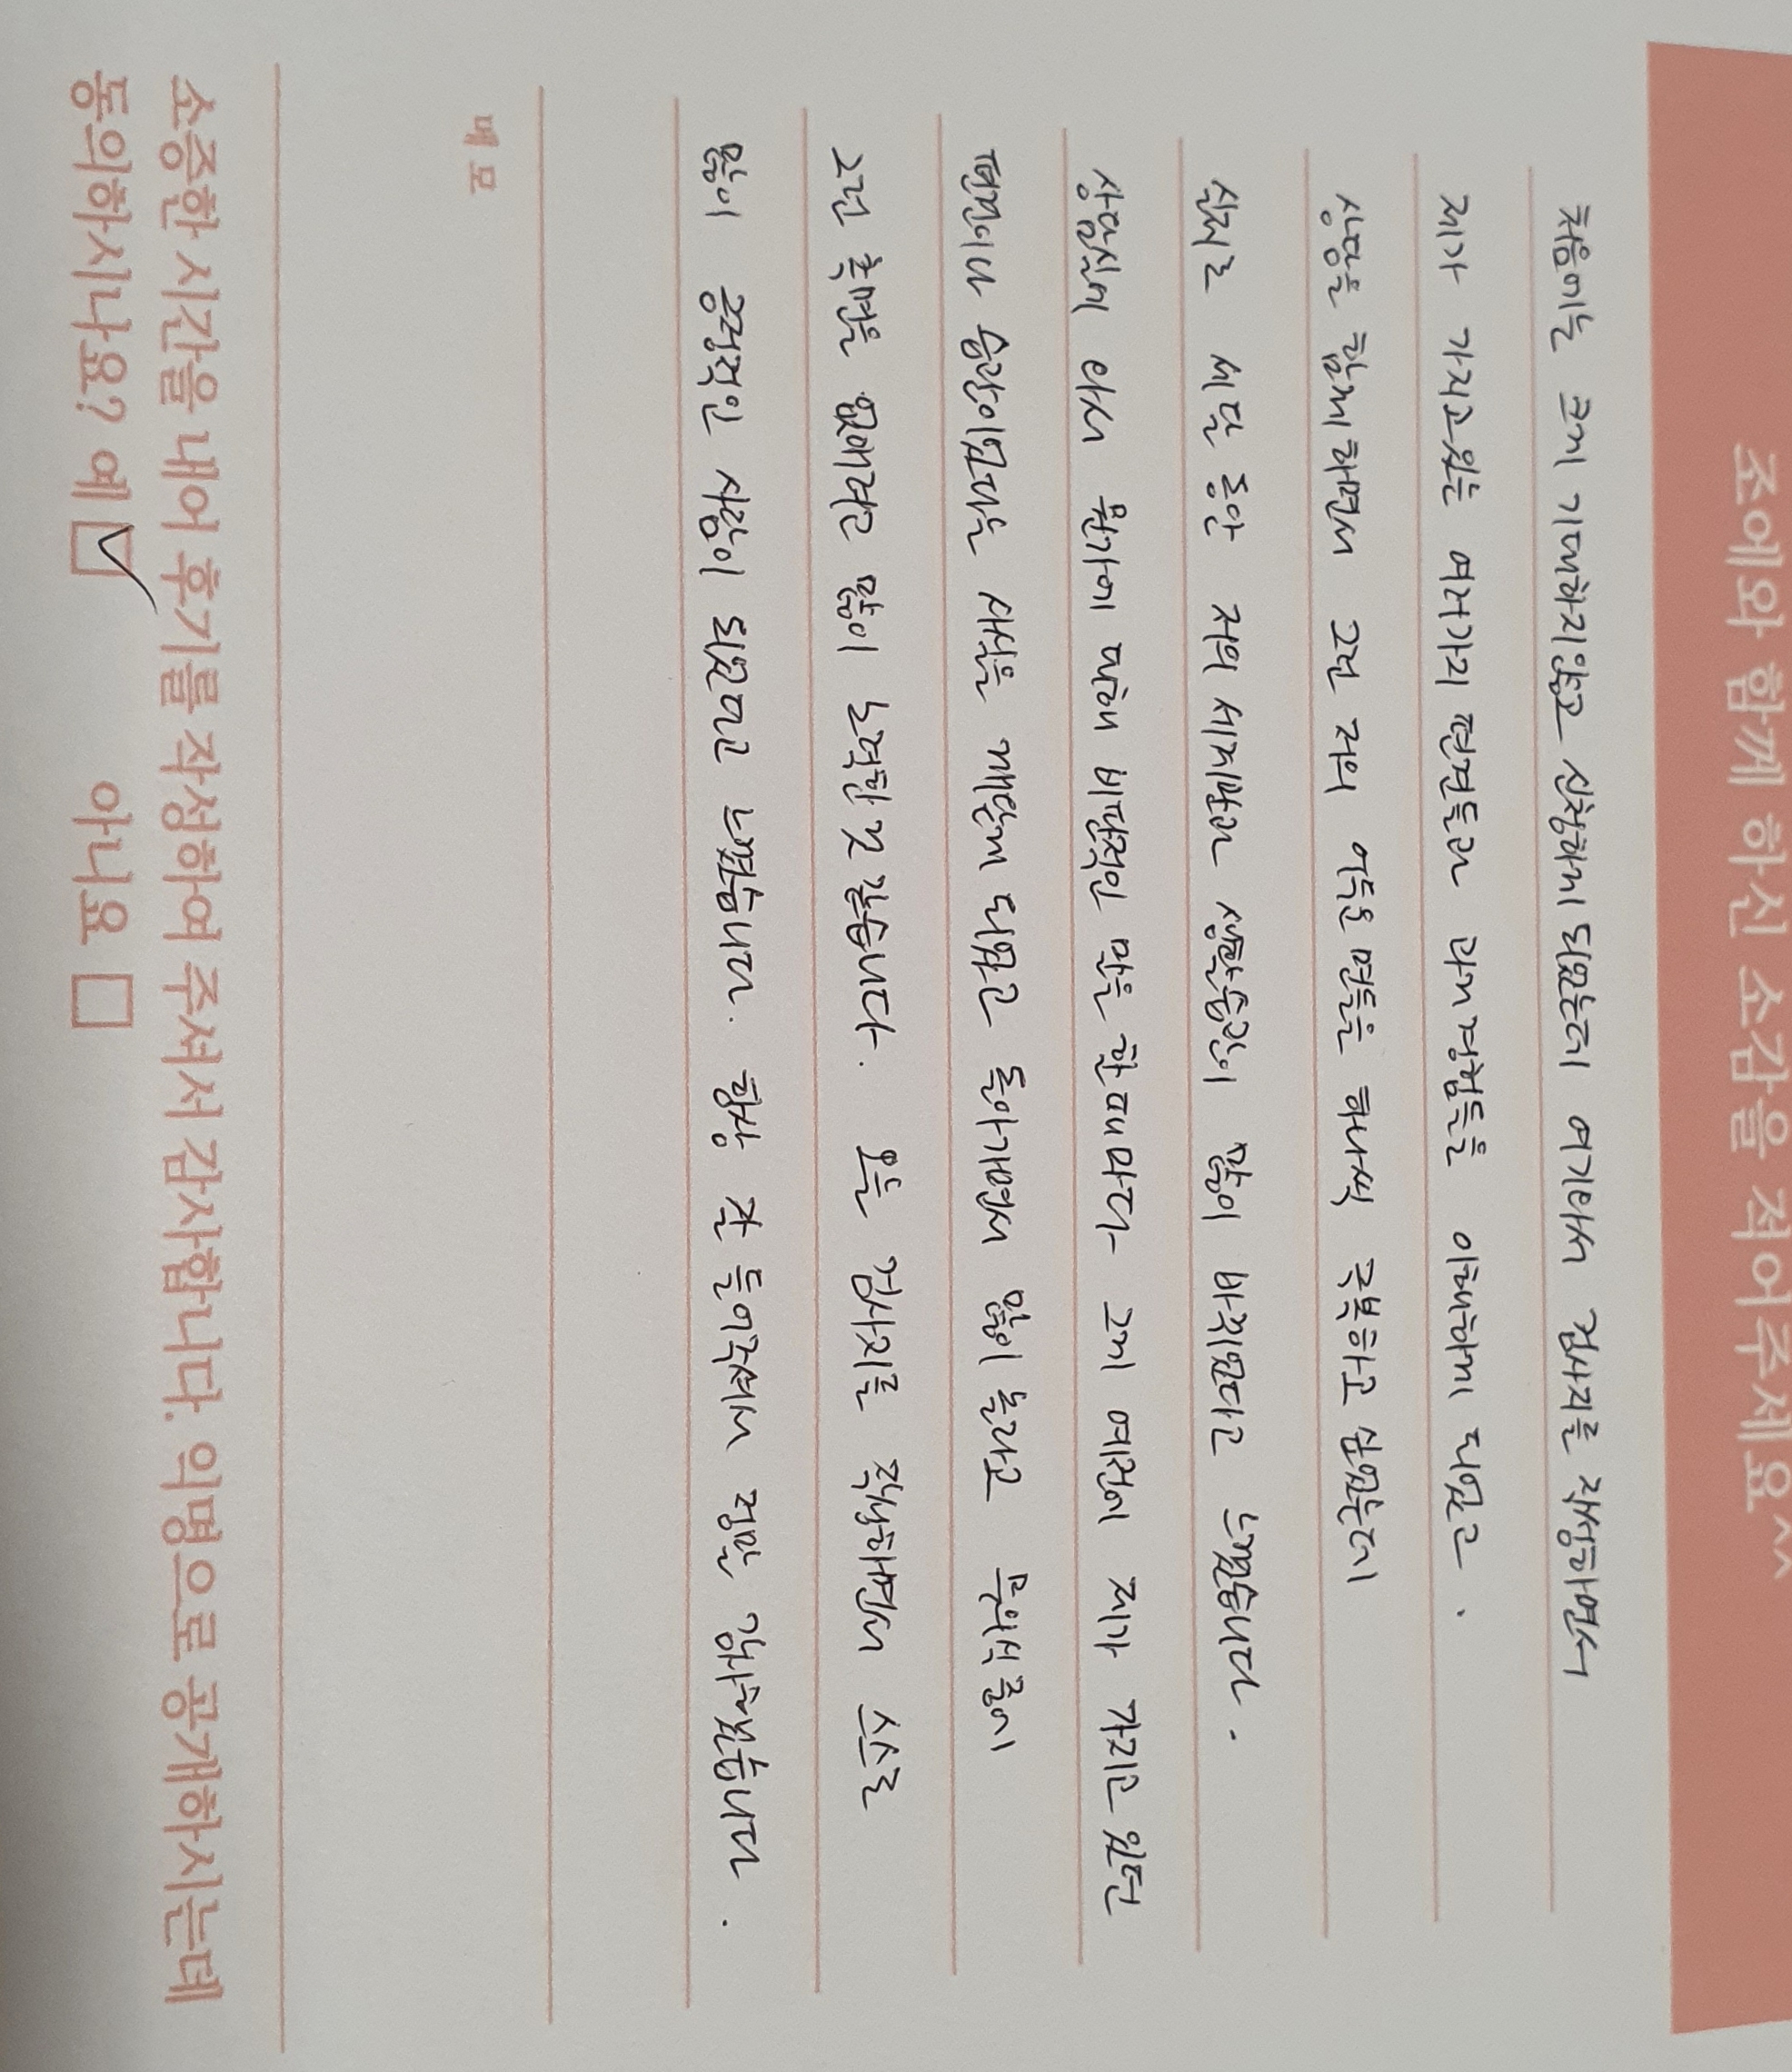 조에와 함께 하신 소감을 적어주세요^^
처음에는 크게 기대하지않고 신청하게 되었는데 여기와서 검사지를 작성하면서
제가 가지고있는 여러가지 편견들과 과거경험들을 이해하게 되었고.
상담을 함께하면서 그런 저의 어두운 면들을 하나씩 극복하고 싶었는데
실제로 세달 동안 저의 세계관과 생활습관이 많이 바뀌었다고 느꼈습니다.
상담실에 와서 뭔가에 대해 비판적인 말을 할때마다 그게 예전에 제가 가지고 있던
편견이나 습관이었다는 사실을 깨닫게 되었고 돌아가면서 많이 놀라고 무의식중에
그런 측면을 없애려고 많이 노력한것 같습니다. 오늘 검사지를 작성하면서 스스로
많이 긍정적인 사람이 되었다고 느꼈습니다. 항상 잘 들어주셔서 정말 감사했습니다.
메모
소중한 시간을 내어 후기를 작성하여 주셔서 감사합니다. 익명으로 공개하시는데
동의하시나요? 예 ☑ 아니요 ☐